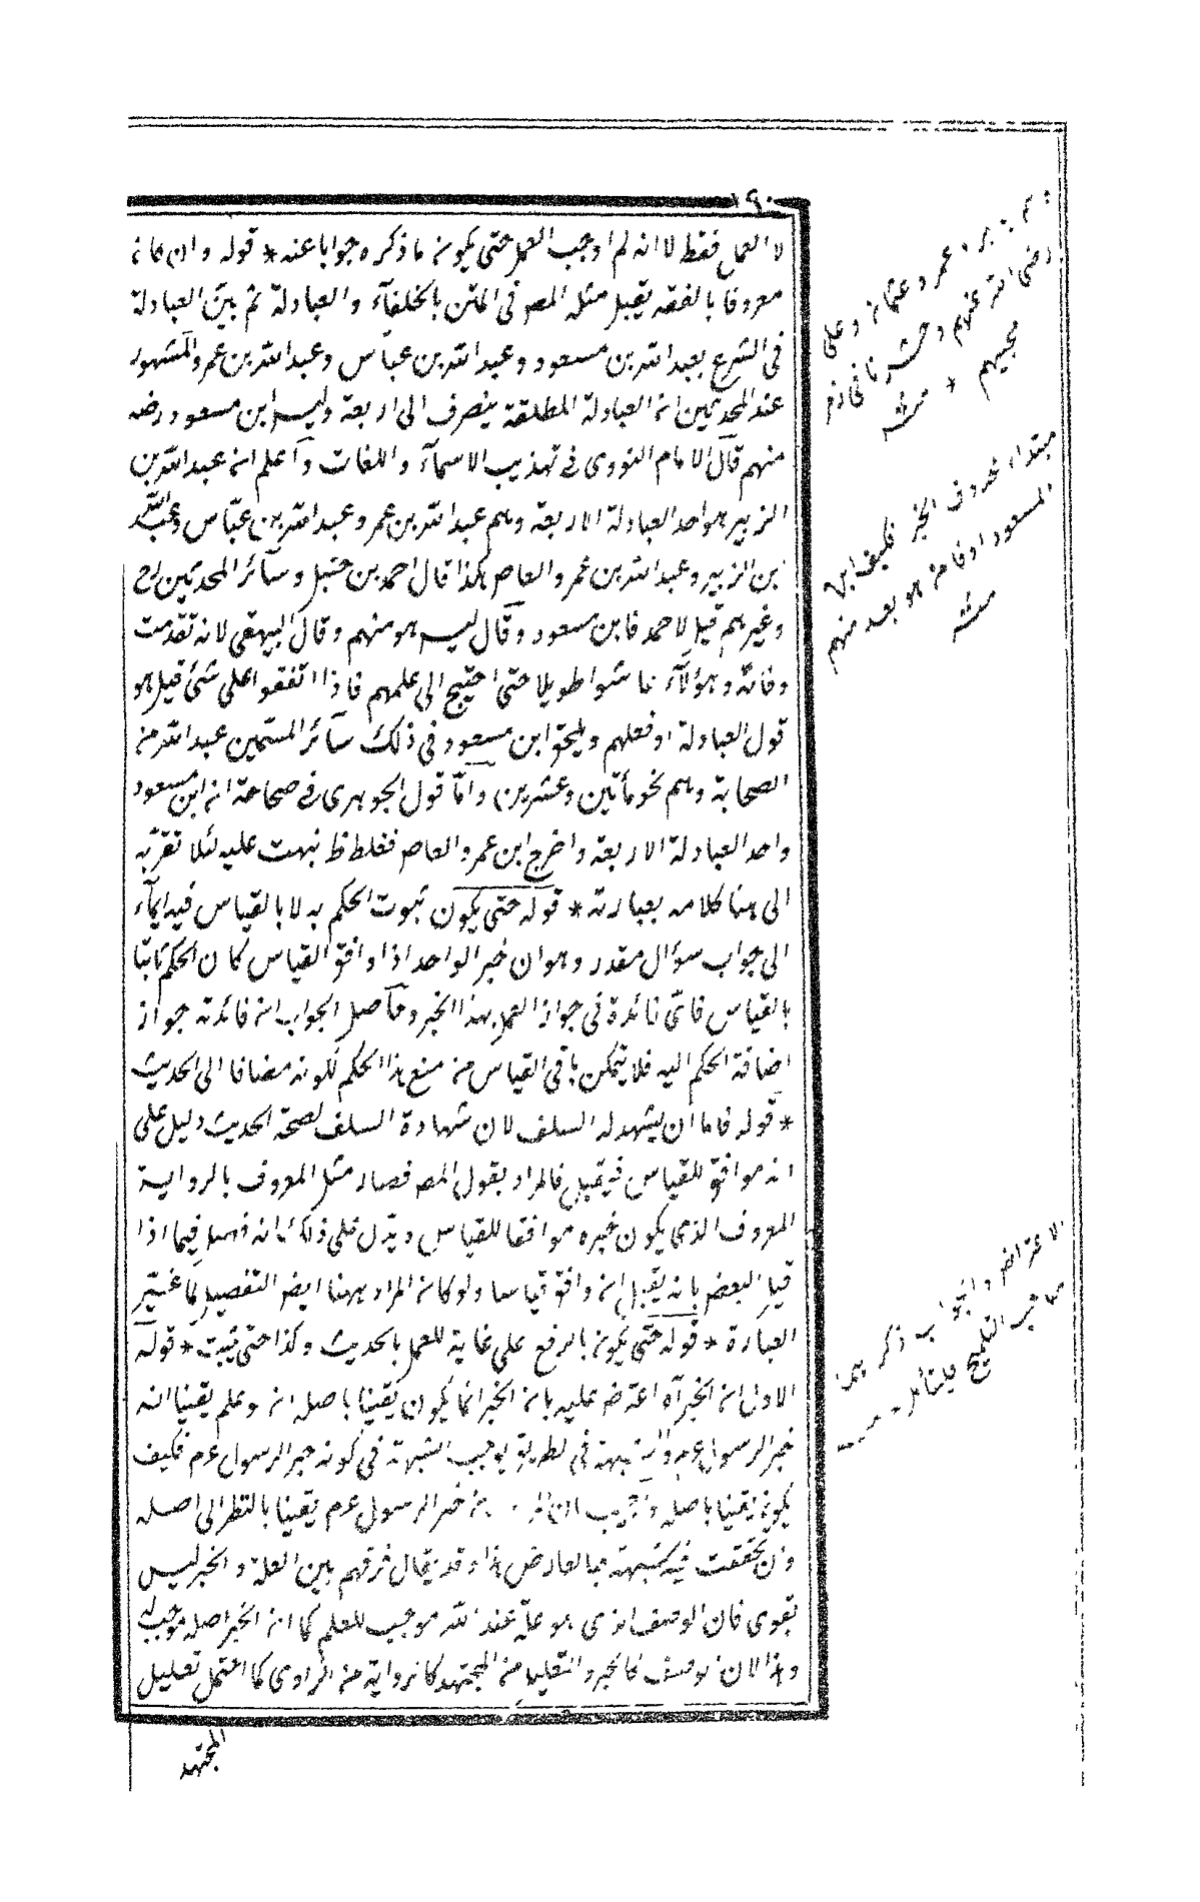 ١٩٠
لا العمل فقط لا انه لم اوجب العمل حتى يكون ما ذكره جوابا عنه * قوله وان كان
معروفا بالفقه يقبل مثله المص في المتن بالخلفآء والعبادلة ثم بيّن العبادلة
في الشرع بعبد الله بن مسعود وعبد الله بن عباس وعبد الله بن عمر والمشهور
عند المحدثين ان العبادلة المطلقة ينصرف الى اربعة وليس ابن مسعود رضه
منهم قال الامام النووي في تهذيب الاسمآء واللغات وآعلم ان عبد الله بن
الزبير هو احد العبادلة الاربعة وهم عبد الله بن عمر وعبد الله بن عباس وعبد الله
بن الزبير وعبد الله بن عمرو العاص هكذا قال احمد بن حنبل وسآئر المحدثين
وغيرهم قيل لاحمد فابن مسعود وقال ليس هو منهم وقال البيهقي لانه تقدمت
وفاته وهؤلآء عاشوا طويلا حتى احتيج الى علمهم فاذا اتفقوا على شئ قيل هو
قول العبادلة او فعلهم ويلحق ابن مسعود في ذلك سآئر المسمين عبد الله من
الصحابة وهم نحو مأتين وعشرين وآمّا قول الجوهري في صحاحه ان ابن مسعود
واحد العبادلة الاربعة واخرج ابن عمرو العاص فغلط ظ نبهت عليه لئلا تغتر به
الى هنا كلامه بعبارته * قوله حتى يكون ثبوت الحكم به لا بالقياس فيه ايمآء
الى جواب سؤال مقدر وهو ان خبر الواحد اذا وافق القياس كان الحكم ثابتا
بالقياس فائ فائدة في جواز العمل بهذا الخبر وحاصل الجواب ان فائدته جواز
اضافة الحكم اليه فلا يتمكن باقي القياس من منع هذا الحكم لكونه مضافا الى الحديث
* قوله فاما ان يشهد له السلف لان شهادة السلف لصحة الحديث دليل على
انه موافق للقياس فيقبل فالمراد بقول المص فصار مثل المعروف بالرواية
المعروف الذي يكون خبره موافقا للقياس ويدل على ذلك انه فصل فيما اذا
قبل البعض بانه يقبل ان وافق قياسا ولو كان المراد ههنا ايض التفصيل لما غيّر
العبارة * قوله حتى يكون بالرفع على غاية للعمل بالحديث وكذا حتى يثبت * قوله
الاول ان الخبر آه اعترض عليه بان الخبر انما يكون يقينا باصله ان وعلم يقينا انه
خبر الرسول عم والشبهة في الطريق يوجب الشبهة في كونه خبر الرسول عم فكيف
يكون يقينا باصله واجيب خبر الرسول عم يقينا بالنظر الى اصله
وان تحققت فيه شبهة بالعارض هذا وقد يقال فرقهم بين العلة والخبر ليس
بقوى فان الوصف الذي هو علة عند الله موجب للعلم كما ان الخبر اصله موجب له
وهذا لان الوصف كالخبر والتعليل من المجتهد كالرواية من الراوي كما احتمل تعليل
المجتهد
عمر وعثمان وعلي
رضى الله عنهم وحشرنا في
محبيهم * منه
مبتداء محذوف الخبر فكيف ابن
المسعود اذ فا من هو بعد منهم
منه
الاعتراض والجواب ذكرهما
صاحب التلويح فليتأمل